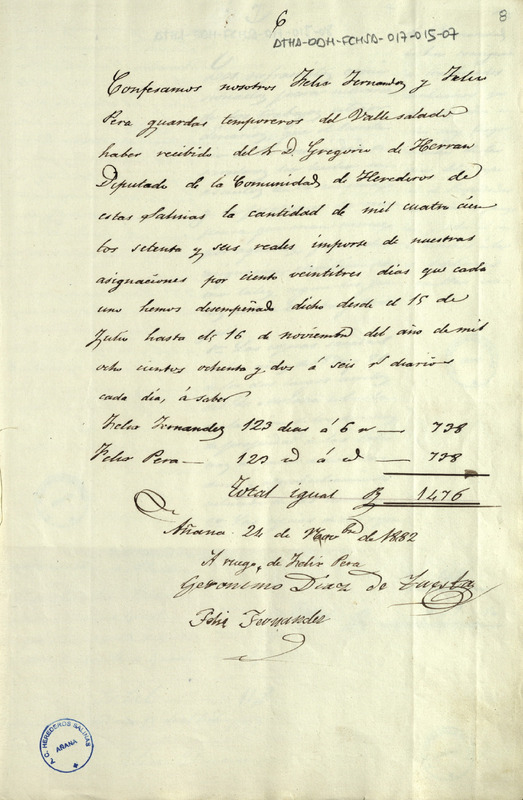 6
8
ATHA-DAH-FCHSA-017-015-07
Confesamos nosotros Felix Fernandez y Felix
Pera guardas temporeros del Valle salado
haber recibido del Sr D. Gregorio de Herran
Diputado de la Comunidad de Herederos de
estas Salinas la cantidad de mil cuatro cien
tos setenta y seis reales importe de nuestras
asignaciones por ciento veintitres dias que cada
uno hemos desempeñado dicho desde el 15 de
Julio hasta el 16 de noviembre del año de mil
ocho cientos ochenta y dos á seis rs diarios
cada dia, á saber
Felix Fernandez 123 dias á 6 rs — 738
Felix Pera — 123 id á id — 738
Total igual R 1476
Añana 24 de Novbre de 1882
A ruego, de Felix Pera
Geronimo Diaz de Tuesta
Felix Fernandez
A. C. HEREDEROS SALINAS
AÑANA